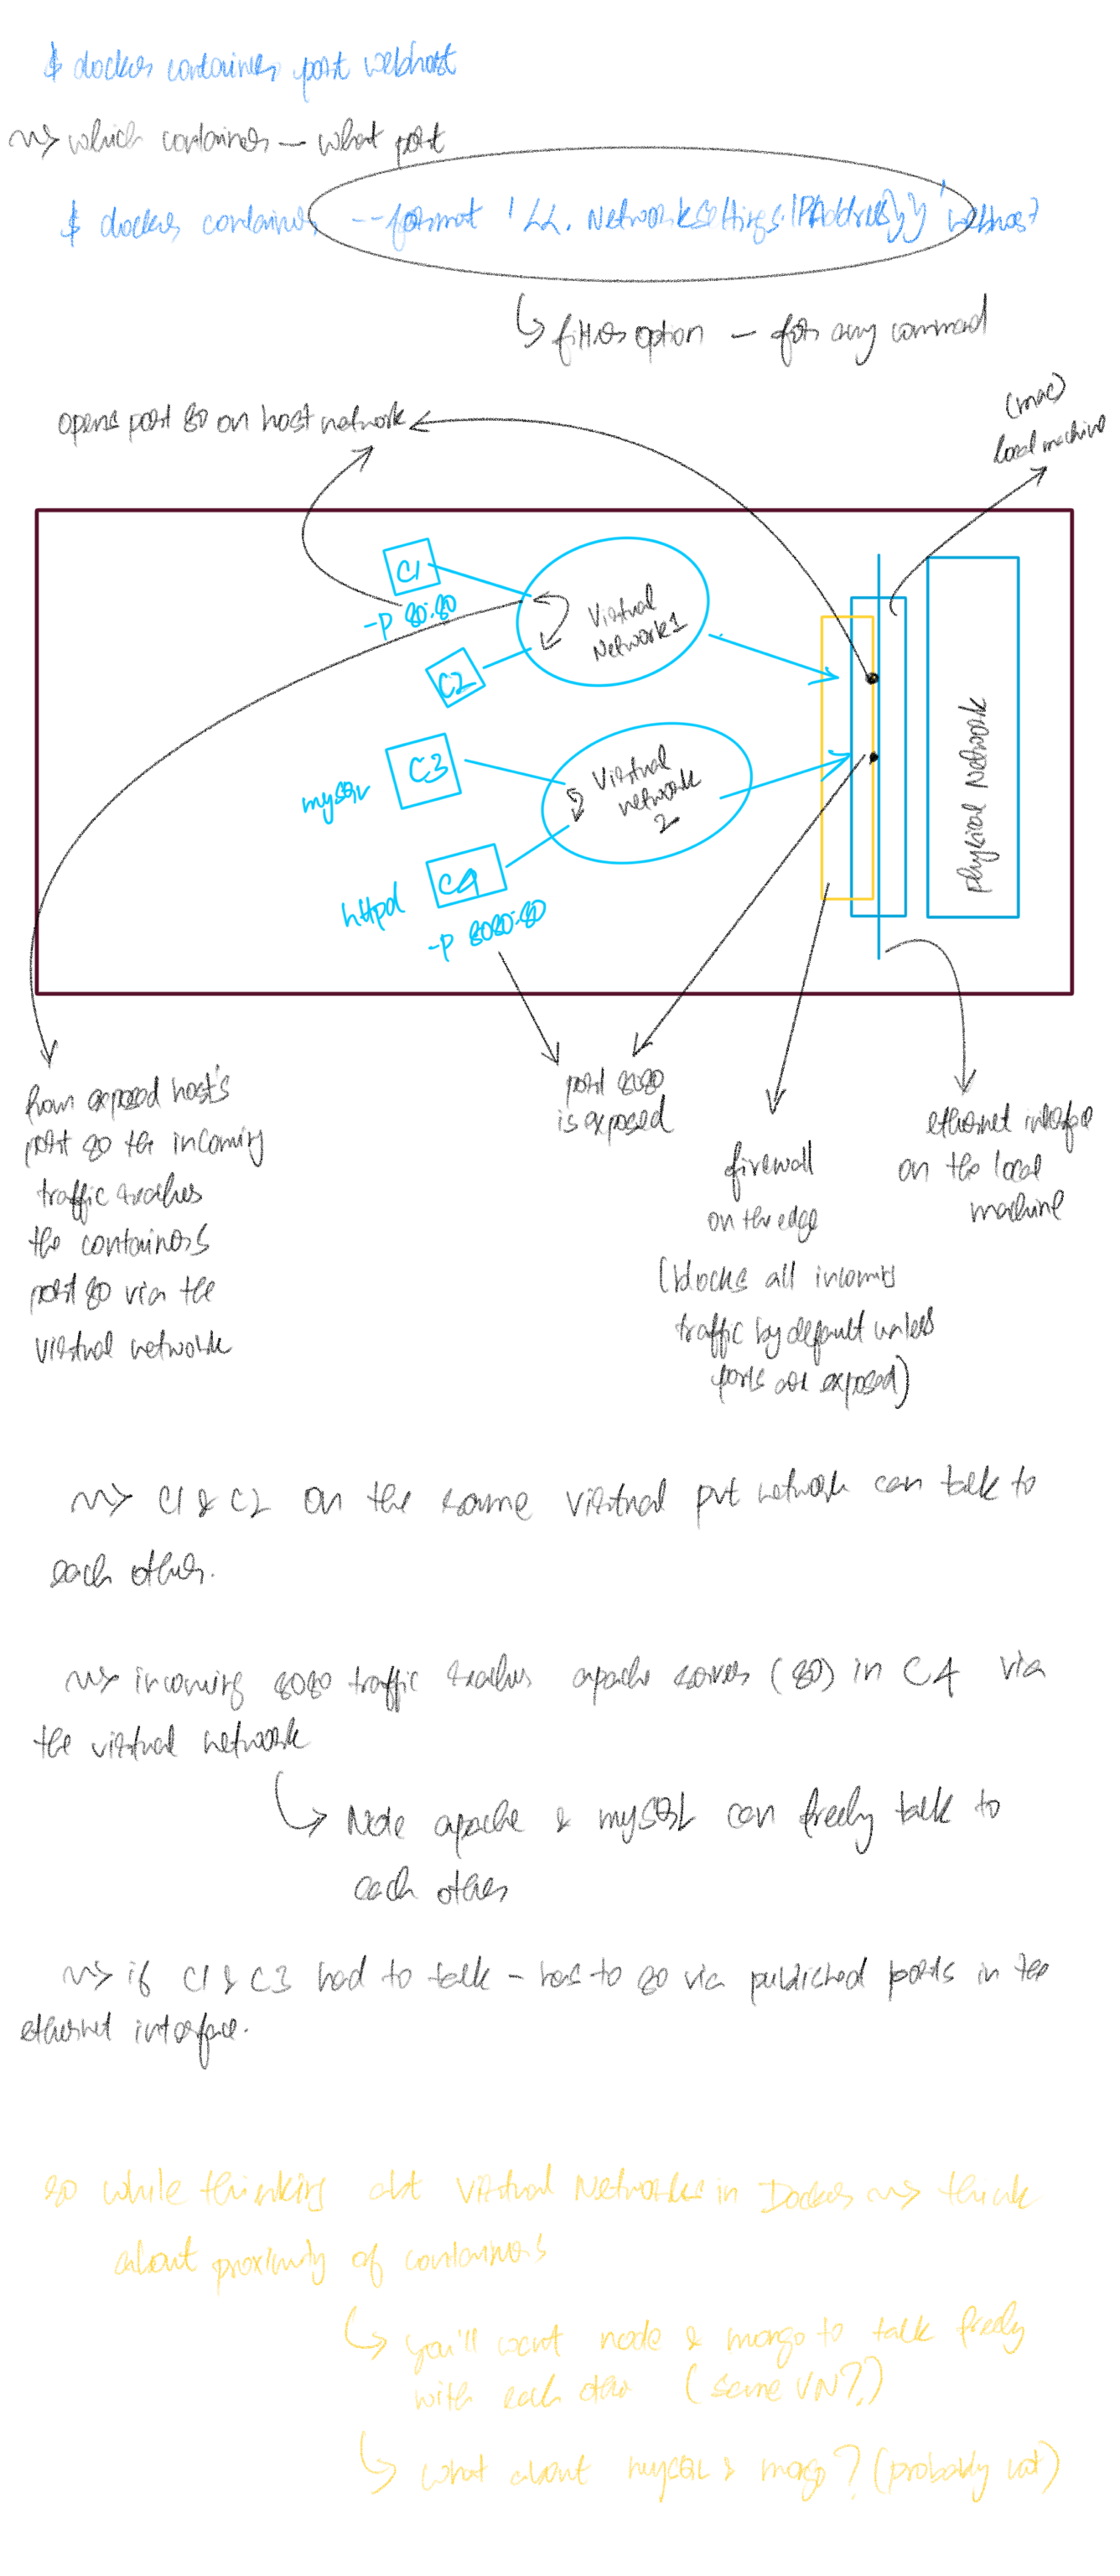 $ docker container port webhost
~> which container — what port
$ docker container --format '{{. NetworkSettings.IPAddress}}' webhost
↳ filter option — for any command
opens port 80 on host network
(mac)
local machine
C1
-p 80:80
Virtual
Network 1
C2
C3
mysql
Virtual
network
2
C4
httpd
-p 8080:80
Physical Network
from exposed host's
port 80 the incoming
traffic reaches
the containers
port 80 via the
virtual network
port 8080
is exposed
firewall
on the edge
(blocks all incoming
traffic by default unless
ports are exposed)
ethernet interface
on the local
machine
~> C1 & C2 on the same virtual pvt network can talk to
each other.
~> incoming 8080 traffic reaches apache server (80) in C4 via
the virtual network
↳ Note apache & mySQL can freely talk to
each other
~> if C1 & C3 had to talk - has to go via published ports in the
ethernet interface.
so while thinking abt Virtual Networks in Docker ~> think
about proximity of containers
↳ you'll want node & mongo to talk freely
with each other (same VN?)
↳ what about mySQL & mongo? (probably not)